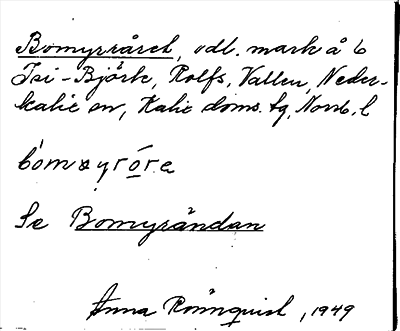 Bomyrråret, odl. mark å 6
Isi-Björk, Rolfs, Vallen, Neder-
kalix sn, Kalix doms. tg, Norrb. l
bòmạyró̱re
Se Bomyrändan
Anna Rönnquist, 1949